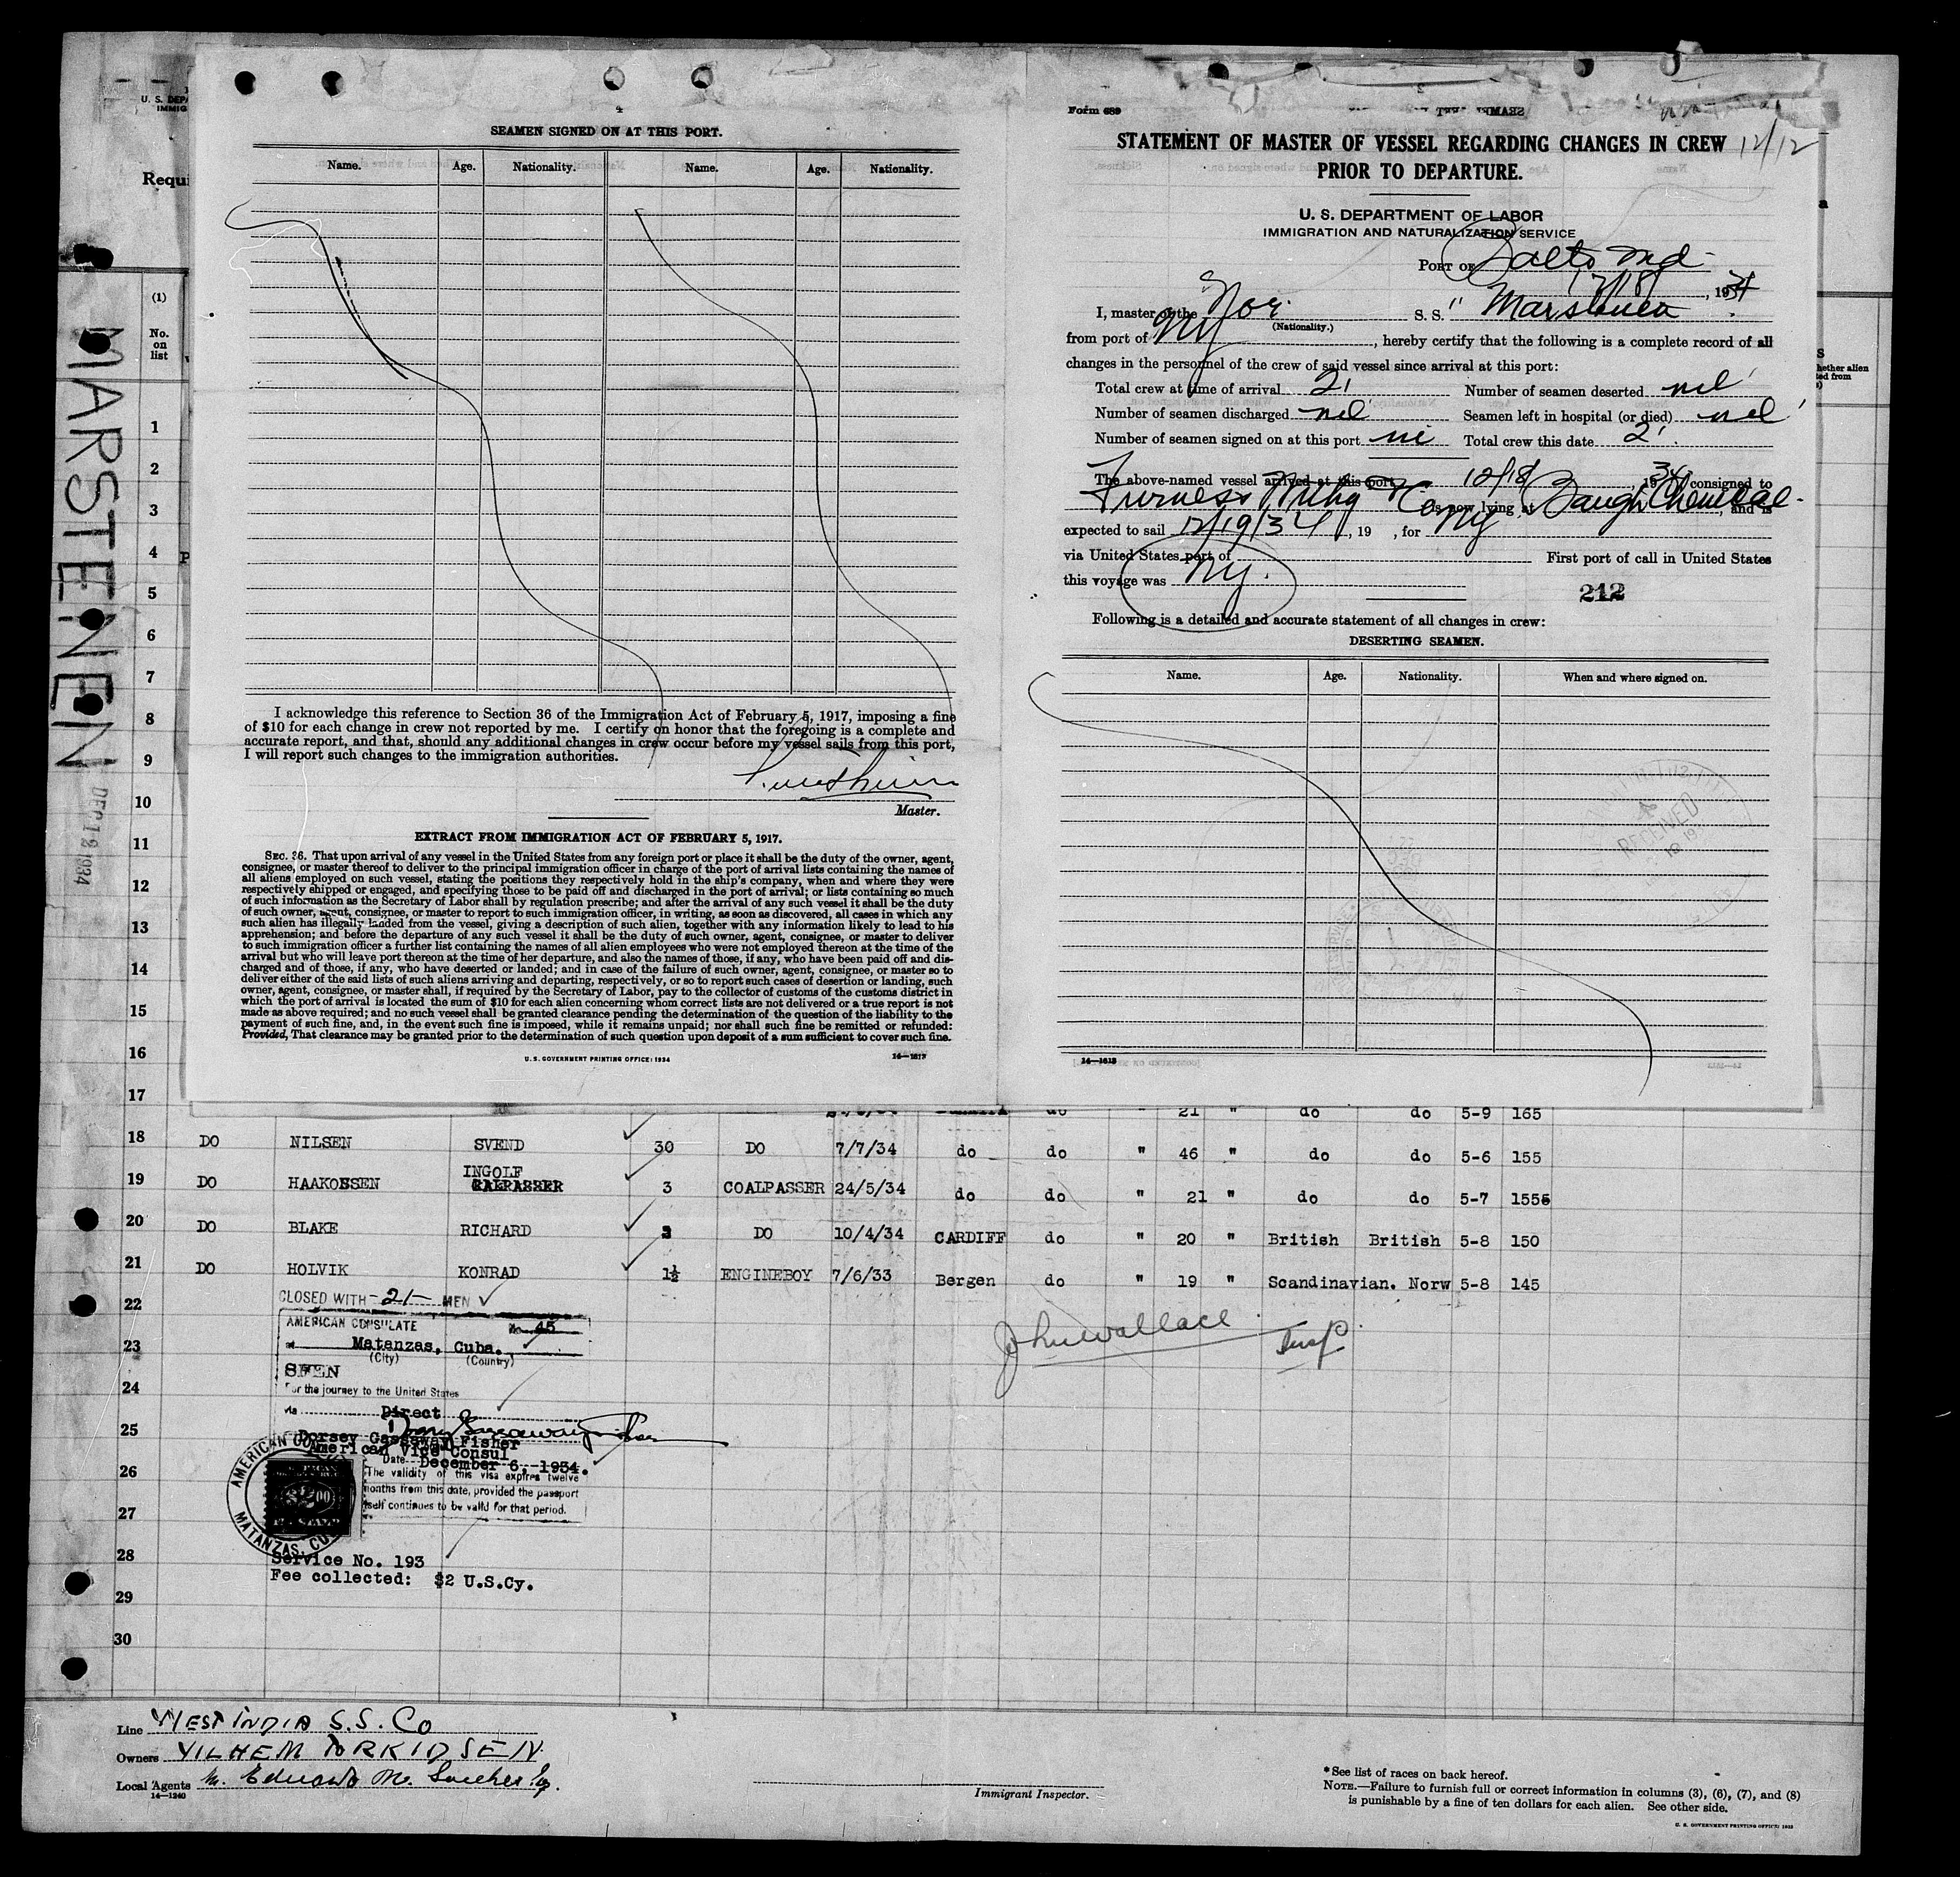 U. S. DEPA
IMMIG
Requi
(1)
No.
on
list
MARSTENEN
DEC 12 1934
4
SEAMEN SIGNED ON AT THIS PORT.
Name. Age. Nationality. Name. Age. Nationality.
I acknowledge this reference to Section 36 of the Immigration Act of February 5, 1917, imposing a fine
of $10 for each change in crew not reported by me. I certify on honor that the foregoing is a complete and
accurate report, and that, should any additional changes in crew occur before my vessel sails from this port,
I will report such changes to the immigration authorities.
Master.
EXTRACT FROM IMMIGRATION ACT OF FEBRUARY 5, 1917.
SEC. 36. That upon arrival of any vessel in the United States from any foreign port or place it shall be the duty of the owner, agent,
consignee, or master thereof to deliver to the principal immigration officer in charge of the port of arrival lists containing the names of
all aliens employed on such vessel, stating the positions they respectively hold in the ship's company, when and where they were
respectively shipped or engaged, and specifying those to be paid off and discharged in the port of arrival; or lists containing so much
of such information as the Secretary of Labor shall by regulation prescribe; and after the arrival of any such vessel it shall be the duty
of such owner, agent, consignee, or master to report to such immigration officer, in writing, as soon as discovered, all cases in which any
such alien has illegally landed from the vessel, giving a description of such alien, together with any information likely to lead to his
apprehension; and before the departure of any such vessel it shall be the duty of such owner, agent, consignee, or master to deliver
to such immigration officer a further list containing the names of all alien employees who were not employed thereon at the time of the
arrival but who will leave port thereon at the time of her departure, and also the names of those, if any, who have been paid off and dis-
charged and of those, if any, who have deserted or landed; and in case of the failure of such owner, agent, consignee, or master so to
deliver either of the said lists of such aliens arriving and departing, respectively, or so to report such cases of desertion or landing, such
owner, agent, consignee, or master shall, if required by the Secretary of Labor, pay to the collector of customs of the customs district in
which the port of arrival is located the sum of $10 for each alien concerning whom correct lists are not delivered or a true report is not
made as above required; and no such vessel shall be granted clearance pending the determination of the question of the liability to the
payment of such fine, and, in the event such fine is imposed, while it remains unpaid; nor shall such fine be remitted or refunded:
Provided, That clearance may be granted prior to the determination of such question upon deposit of a sum sufficient to cover such fine.
U. S. GOVERNMENT PRINTING OFFICE: 1934 14—1617
Form 689
STATEMENT OF MASTER OF VESSEL REGARDING CHANGES IN CREW 12/12
PRIOR TO DEPARTURE.
U. S. DEPARTMENT OF LABOR
IMMIGRATION AND NATURALIZATION SERVICE
PORT OF Balto Md.
12/18, 1934
I, master of the Nor. S. S. "Marstenen
(Nationality.)
from port of NY, hereby certify that the following is a complete record of all
changes in the personnel of the crew of said vessel since arrival at this port:
Total crew at time of arrival 21 Number of seamen deserted nil
Number of seamen discharged nil Seamen left in hospital (or died) nil
Number of seamen signed on at this port ni Total crew this date 21
The above-named vessel arrived at this port 12/18, 1934 consigned to
Furness Withy Co is now lying at Baugh Chemical, and is
expected to sail 12/19/34, 19 , for NY
via United States port of First port of call in United States
this voyage was NY.
212
Following is a detailed and accurate statement of all changes in crew:
DESERTING SEAMEN.
Name. Age. Nationality. When and where signed on.
RECEIVED
14—1613
hether alien
ted from
1
2
3
4
5
6
7
8
9
10
11
12
13
14
15
16
17 do " 21 " do do 5-9 165
18 DO NILSEN SVEND 30 DO 7/7/34 do do " 46 " do do 5-6 155
INGOLF
19 DO HAAKONSEN 3 COALPASSER 24/5/34 do do " 21 " do do 5-7 155
20 DO BLAKE RICHARD 3 DO 10/4/34 CARDIFF do " 20 " British British 5-8 150
21 DO HOLVIK KONRAD 1½ ENGINEBOY 7/6/33 Bergen do " 19 " Scandinavian. Norw 5-8 145
22 CLOSED WITH -21- MEN
AMERICAN CONSULATE No. 45
23 at Matanzas, Cuba.
(City) (Country)
John Wallace Insp.
SEEN
24 For the journey to the United States
via Direct
25 Dorsey Gassaway Fisher
American Vice Consul
Date December 6, 1934.
26 The validity of this visa expires twelve
months from this date, provided the passport
itself continues to be valid for that period.
27
AMERICAN CO
MATANZAS, CU
28
Service No. 193
Fee collected: $2 U.S.Cy.
29
30
Line WEST INDIA S.S. Co
Owners VILHEM TORKIDSEN
Local Agents
14—1240
Immigrant Inspector.
* See list of races on back hereof.
NOTE.—Failure to furnish full or correct information in columns (3), (6), (7), and (8)
is punishable by a fine of ten dollars for each alien. See other side.
U. S. GOVERNMENT PRINTING OFFICE: 1933